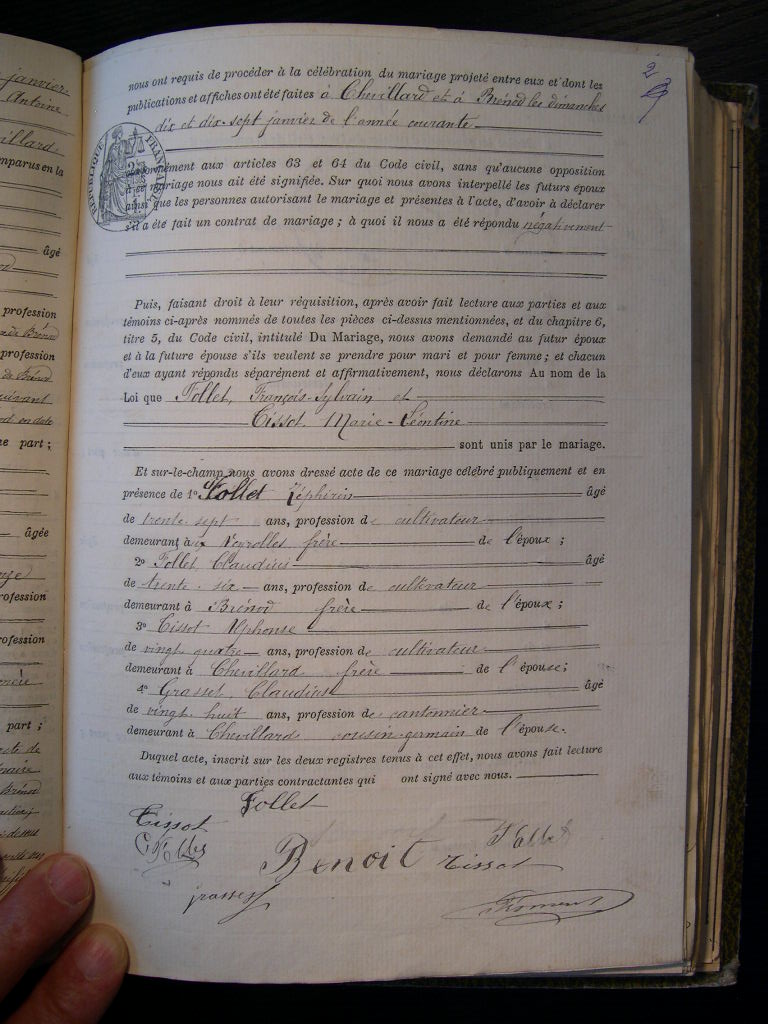 janvier
Antoine
illard
mparus en la
âgé
profession
de Brénod
profession
de Brénod
e part ;
âgée
rofession
rofession
part ;
acte de
Brénod
2
nous ont requis de procéder à la célébration du mariage projeté entre eux et dont les
publications et affiches ont été faites à Chevillard et à Brénod les dimanches
dix et dix-sept janvier de l'année courante
RÉPUBLIQUE FRANÇAISE
conformément aux articles 63 et 64 du Code civil, sans qu'aucune opposition
à ce mariage nous ait été signifiée. Sur quoi nous avons interpellé les futurs époux
ainsi que les personnes autorisant le mariage et présentes à l'acte, d'avoir à déclarer
s'il a été fait un contrat de mariage ; à quoi il nous a été répondu négativement
Puis, faisant droit à leur réquisition, après avoir fait lecture aux parties et aux
témoins ci-après nommés de toutes les pièces ci-dessus mentionnées, et du chapitre 6,
titre 5, du Code civil, intitulé Du Mariage, nous avons demandé au futur époux
et à la future épouse s'ils veulent se prendre pour mari et pour femme ; et chacun
d'eux ayant répondu séparément et affirmativement, nous déclarons Au nom de la
Loi que Follet, François-Sylvain et
Tissot, Marie-Léontine
sont unis par le mariage.
Et sur-le-champ nous avons dressé acte de ce mariage célébré publiquement et en
présence de 1º Follet Zéphirin âgé
de trente sept ans, profession de cultivateur
demeurant à Veyrolles frère de l'époux ;
2º Follet, Claudius âgé
de trente-six ans, profession de cultivateur
demeurant à Brénod frère de l'époux ;
3º Tissot Alphonse
de vingt quatre ans, profession de cultivateur
demeurant à Chevillard frère de l'épouse ;
4º Grasset, Claudius âgé
de vingt huit ans, profession de cantonnier
demeurant à Chevillard cousin-germain de l'épouse.
Duquel acte, inscrit sur les deux registres tenus à cet effet, nous avons fait lecture
aux témoins et aux parties contractantes qui ont signé avec nous.
Follet
Tissot
Follet
Benoit Tissot